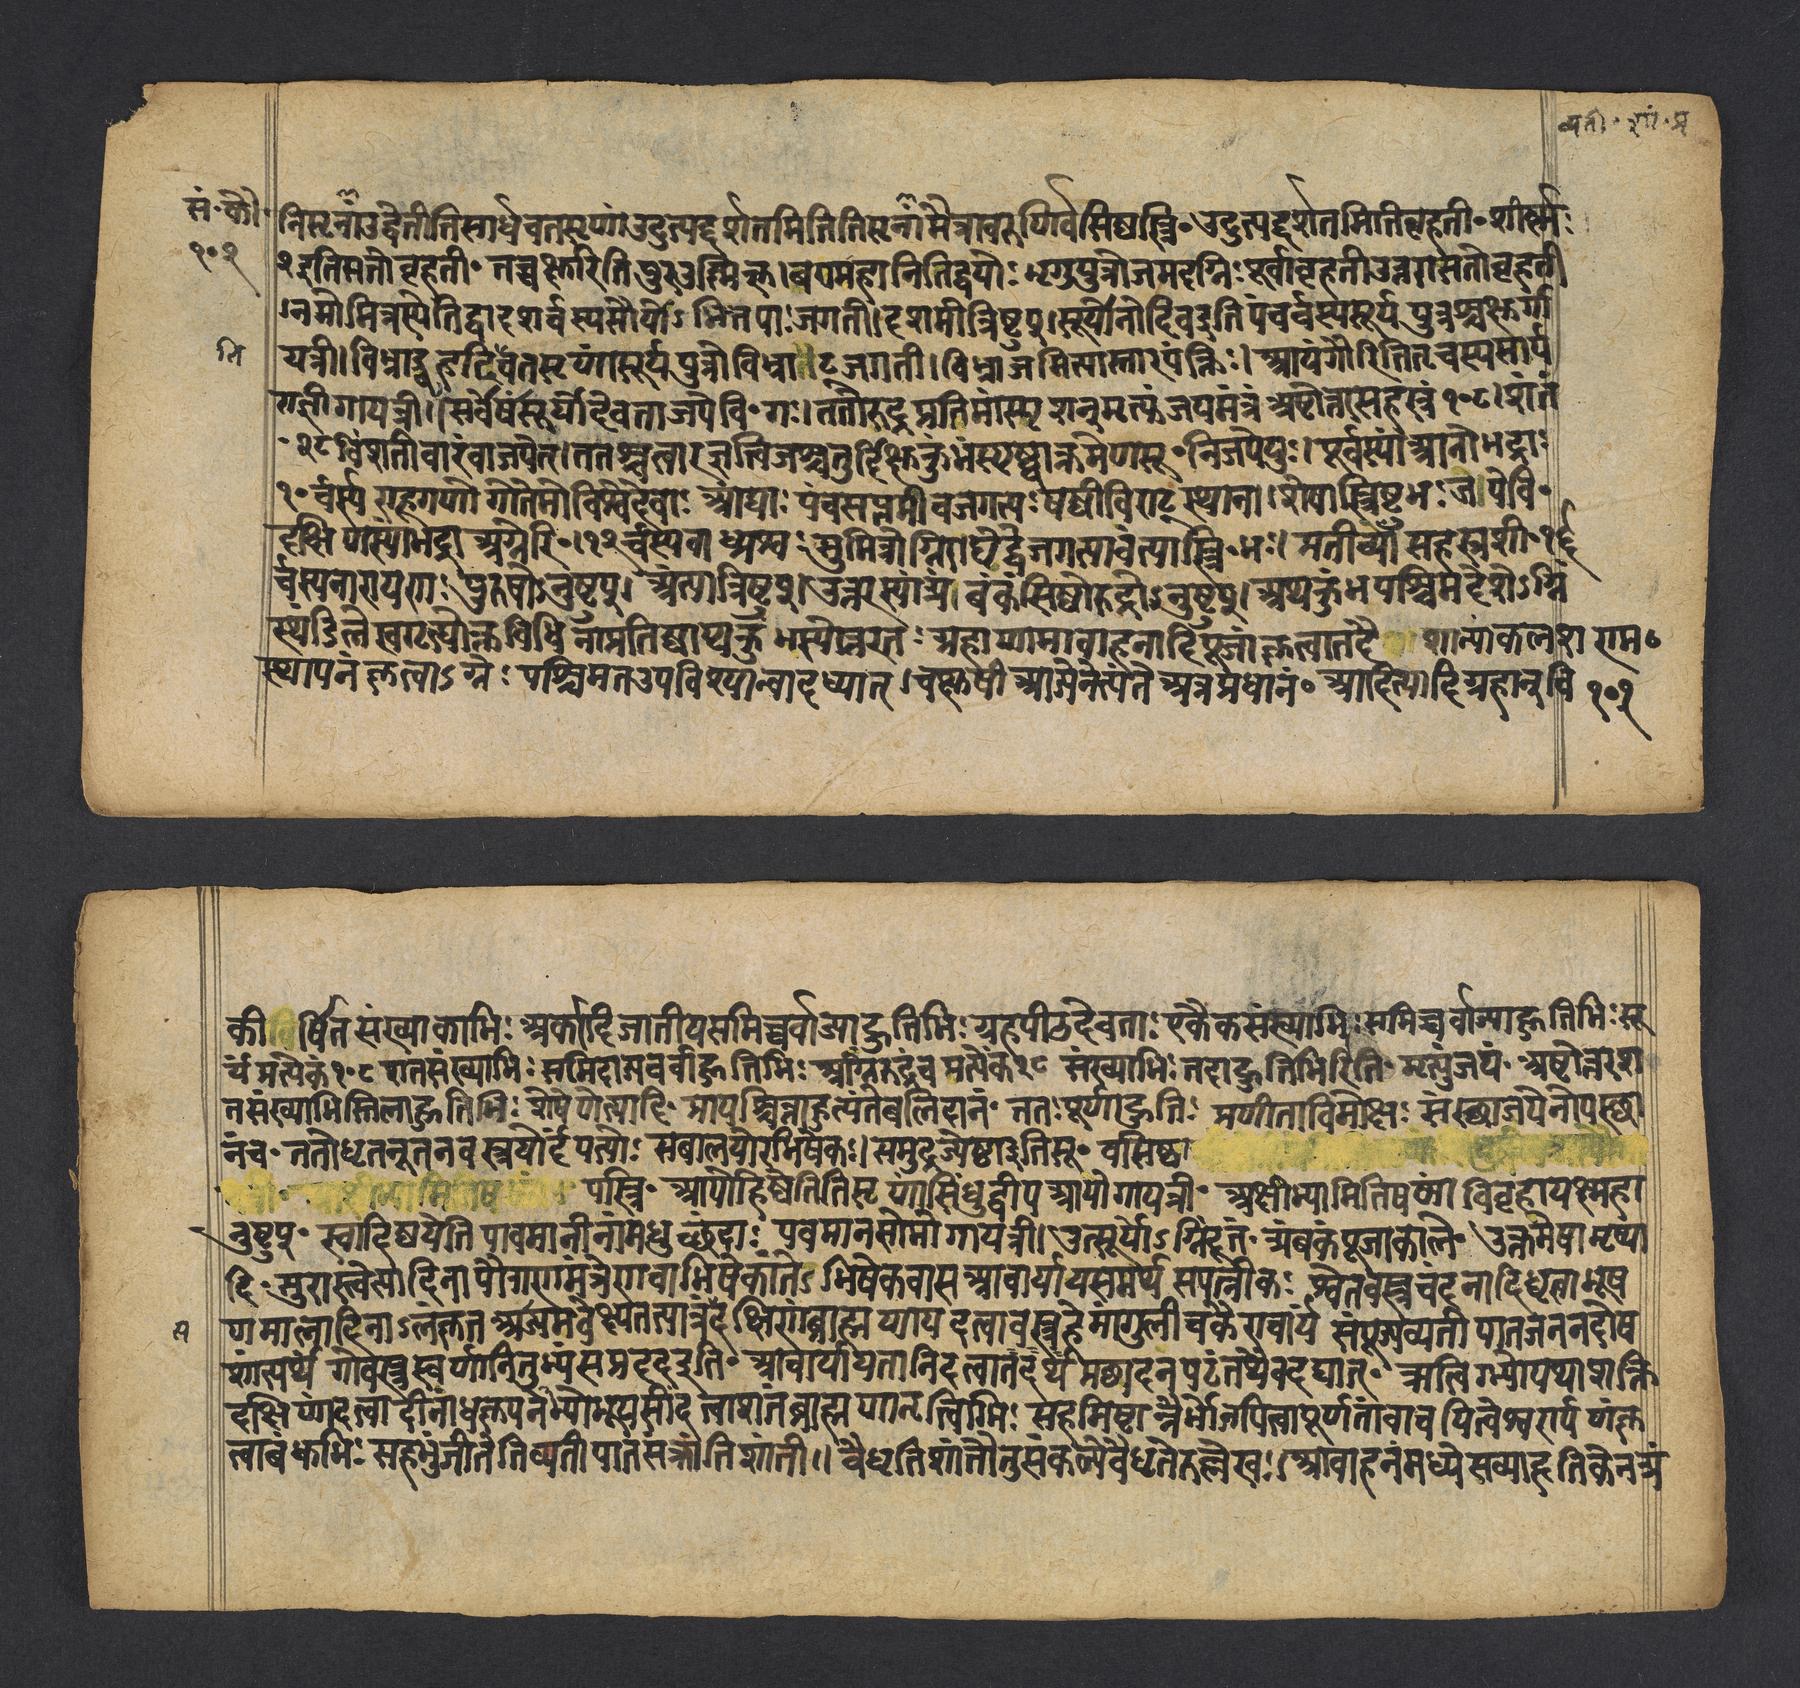 व्यती॰ शां॰ प्र
सं॰ कौ॰
१०२
ति
निसृनांउद्वेतीतिसार्धचतसृणांउदुत्यद्दर्शतमितितिसृनांमैत्रावरुणिर्वसिष्ठस्त्रि॰ उदुत्यद्दर्शतमितिबृहती॰ शीर्ष्णः
२इतिसतोबृहती॰ तच्चक्षुरितिपुरउष्णिक् ।बण्महानितिद्वयोः भृगुपुत्रोजमदग्निः पूर्वाबृहतीउत्तरासतोबृहती
।नमोमित्रस्येतिद्वादशर्चस्यसौर्योऽभितपाः जगती।दशमीत्रिष्टुप्।सूर्योनोदिवइतिपंचर्चस्यसूर्यपुत्रश्चक्षुर्गा
यत्री।विभ्राड्बृहदितिचतसृणांसूर्यपुत्रोविभ्राट् जगती।विभ्राजमित्यास्तारपंक्तिः।आयंगौरितितृचस्यसार्प
राज्ञीगायत्री।।सर्वेषांसूर्योदेवताजपेवि॰ गः।ततोरुद्रप्रतिमांस्पृशन्मृत्युंजयमंत्रंअष्टोत्तरसहस्रं१०८।शतं
॰२८विंशतीवारंवाजपेत्।ततश्चत्वारऋत्विजश्चतुर्दिक्षुकुंभंस्पृष्ट्वाक्रमेणसू॰ निजपेयुः।पूर्वस्यांआनोभद्राः
१०र्चस्य राहूगणो गोतमोविश्वेदेवाः आद्याः पंचसप्तमीचजगत्यः षष्ठीविराट्स्थाना।शेषास्त्रिष्टुभः जपेवि॰
दक्षिणस्यांभद्राअग्नेरि॰।१२र्चस्यवाध्र्यश्वः सुमित्रोग्निराद्येद्वेजगत्यावंत्यास्त्रि॰भः। प्रतीच्यां सहस्रशी॰१६
र्चस्यनारायणः पुरुषोऽनुष्टुप्। अंत्यात्रिष्टुप्।उत्तरस्यांत्र्यंबकंवसिष्ठोरुद्रोऽनुष्टुप्।अथकुंभपश्चिमदेशेऽग्निं
स्थंडिलेस्वगृह्योक्तविधिनाप्रतिष्ठाप्यकुंभस्योत्तरतः ग्रहाण्यामावाहनादिपूजांकृत्वातदै शान्यांकलश राम॰
स्थापनं कृत्वाऽग्नेः पश्चिमतउपविश्यान्वादध्यात् ।चक्षुषीआज्येनेत्यंतेअत्रप्रधानं॰ आदित्यादिग्रहान्वि १०२
कीर्षितसंख्याकाभिः अर्कादिजातीयसमिच्चर्वाज्याहुतिभिः ग्रहपीठदेवताः एकैकसंख्याभिः समिच्चर्वाज्याहुतिभिः सू
र्यंप्रत्येकं१०८शतसंख्याभिः समिदाज्यचर्वाहुतिभिः अग्निंरुद्रंचप्रत्येकं२८ संख्याभिः तदाहुतिभिरिति॰ मृत्युंजयं॰ अष्टोत्तरश
तसंख्याभिस्तिलाहुतिभिः शेषेणेत्यादि॰ प्रायश्चित्ताहुत्यंतेबलिदानं॰ ततः पूर्णाहुति॰ प्रणीताविमोक्षः संस्थाजपेनोपस्था
नंच॰ ततोधृतनूतनवस्त्रयोर्दंपत्योः सबालयोरभिषेकः।समुद्रज्येष्ठाइतिसू॰ वसिष्ठा
पस्त्रि॰ आपोहिष्ठेतितिसृणांसिंधुद्वीप आपोगायत्री॰ अक्षीभ्यामितिषण्णां विवृहायक्ष्महा
नुष्टुप्॰ स्वादिष्ठयेति पावमानीनांमधुच्छंदाः पवमानसोमोगायत्री।उत्सूर्योऽग्निंदूतं॰ त्र्यंबकंपूजाकाले॰ उक्तमेषामृष्या
दि॰ सुरास्त्वेत्यादिनापौराणमंत्रेणचाभिषेकांतेऽभिषेकवासआचार्यायसमर्प्य सपत्नीकः श्वेतवस्त्रचंदनादिधृत्वाभूष
णमालादिनाऽलंकृतआज्यमवेक्ष्यतत्पात्रंदक्षिणांब्राह्मणायदत्वावस्त्रहेमांगुलीयकैराचार्यं संपूज्यव्यतीपातजननदोष
शांत्यर्थं गोवस्त्रस्वर्णानितुभ्यंसंप्रददइति॰ आचार्यायतानिदत्वातदर्थंप्रच्छादनपटंतथैवदद्यात्॰ ऋत्विग्भ्योयथाशक्ति
दक्षिणांदत्वा दीनांधकृपणेभ्योभूयसींदत्वाशतंब्राह्मणानृत्विग्भिः सहमिष्टान्नैर्भोजयित्वापूर्णतांवाचयित्वेश्वरार्पणंकृ
त्वाबंधुभिः सहभुंजीतेतिव्यतीपातसंक्रांतिशांती।। वैधृतिशांतौतुसंकल्पेवैधृतेरुल्लेखः।आवाहनंमध्येसव्याहृतिकेनत्र्यं